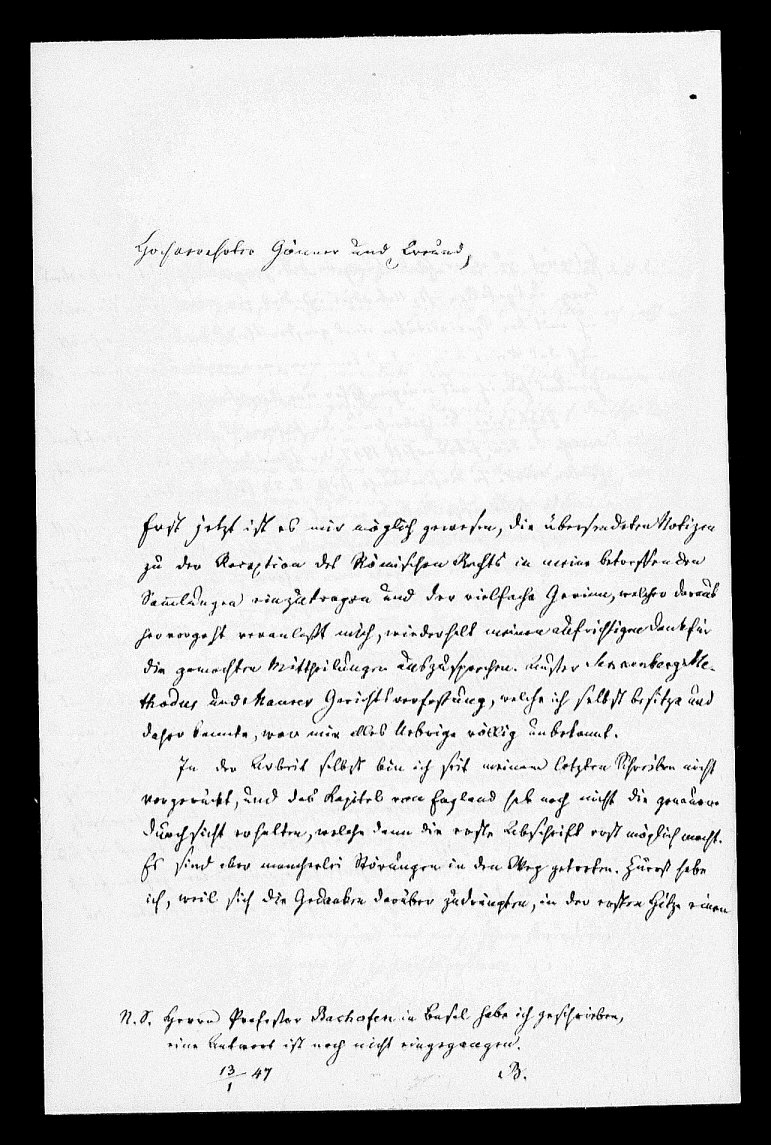 Hochverehrter Gönner und Freund,
Erst jetzt ist es mir möglich gewesen, die übersendeten Notizen
zu der Reception des Römischen Rechts in meine betreffenden
Sammlungen einzutragen und der vielfache Gewinn, welcher daraus
hervorgeht veranlaßt mich, wiederholt meinen aufrichtigen Dank für
die gemachten Mittheilungen auszusprechen. Außer Senkenbergs Me-
thodus und Maurer Gerichtsverfassung, welche ich selbst besitze und
daher kannte, war mir alles Uebrige völlig unbekannt.
In der Arbeit selbst bin ich seit meinem letzten Schreiben nicht
vorgerückt, und das Kapitel von England hat noch nicht die genauere
Durchsicht erhalten, welche dann die erste Abschrift erst möglich macht.
Es sind aber mancherlei Störungen in den Weg getreten. Zuerst habe
ich, weil sich die Gedanken darüber zudrängten, in der ersten Hitze einen
N. S. Herrn Professor Bachofen in Basel habe ich geschrieben,
eine Antwort ist noch nicht eingegangen.
13/1 47 B.